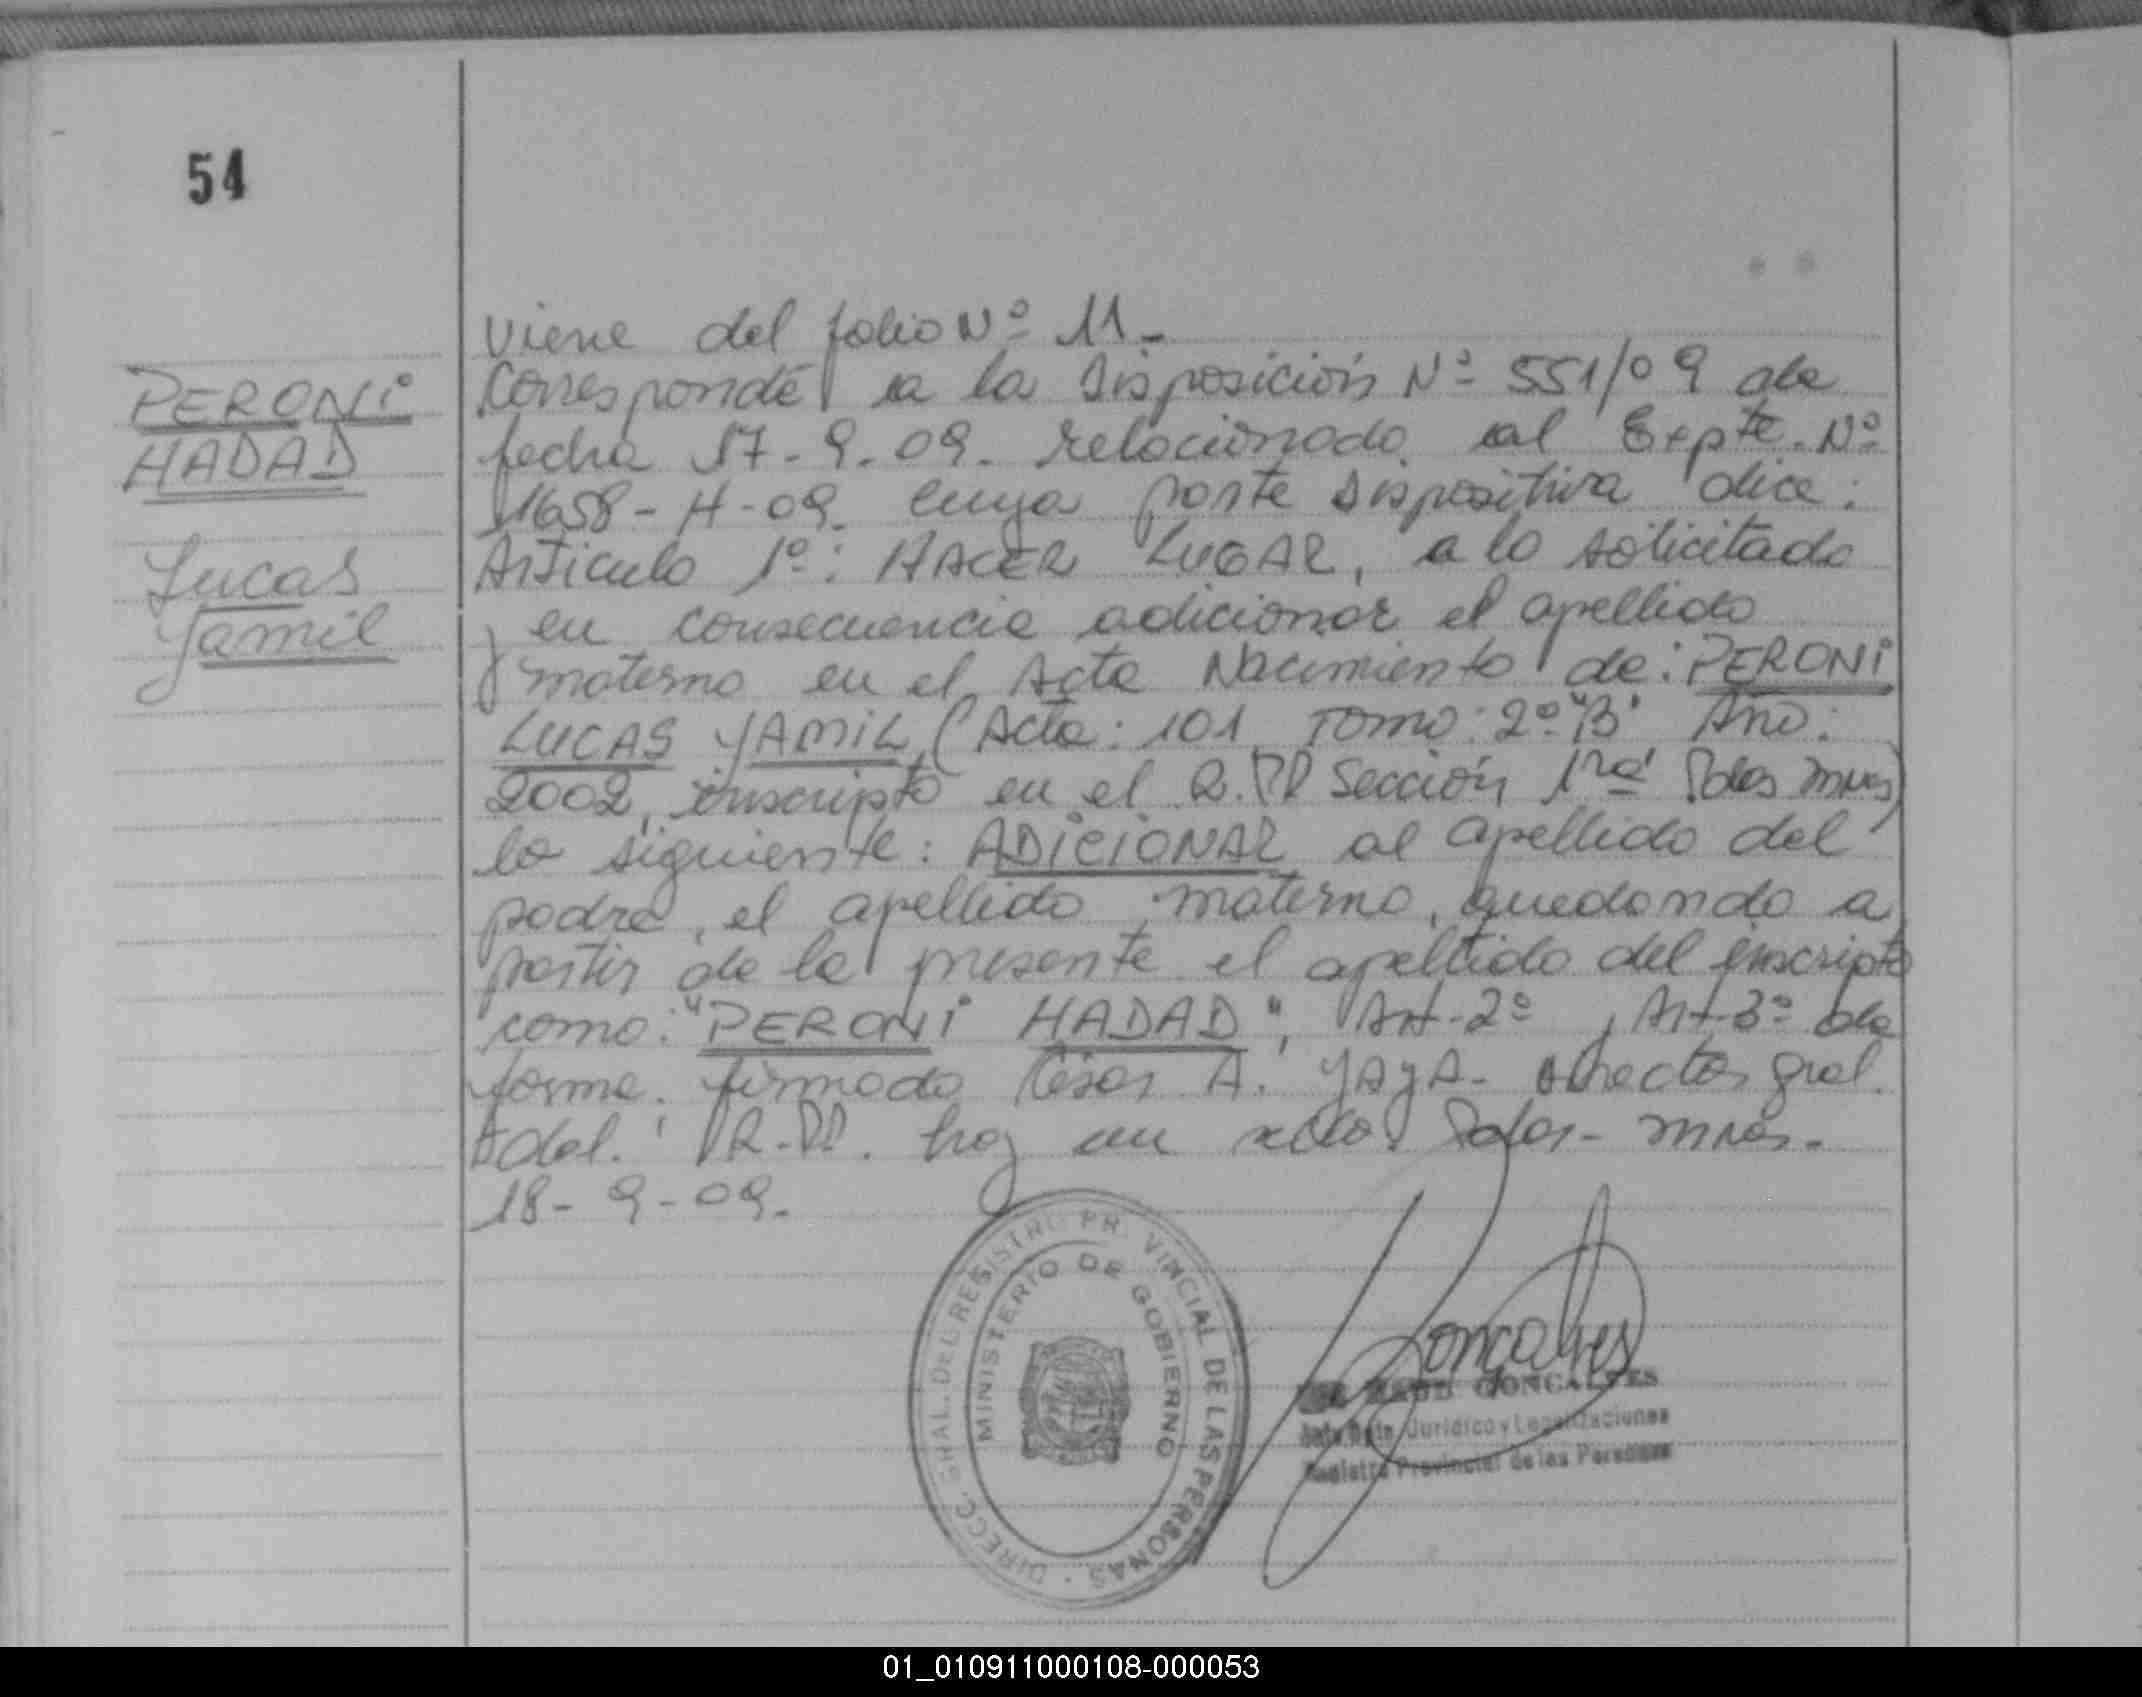 54
PERONI
HADAD
Lucas
Yamil
Viene del folio Nº 11-
Corresponde a la Disposición Nº 551/09 de
fecha 17-9-09. relacionado al Expte. Nº
1658-H-09. cuya parte dispositiva dice:
Articulo 1º: HACER LUGAR, a lo solicitado
y en consecuencia adicionar el apellido
materno en el Acta Nacimiento de: PERONI
LUCAS YAMIL (Acta: 101 Tomo: 2º "B" Año:
2002, inscripto en el R.PP Sección 1ra Pdas Mnes)
lo siguiente: ADICIONAR al apellido del
padre, el apellido materno, quedando a
partir de la presente el apellido del inscripto
como: "PERONI HADAD", Art-2º, Art-3º de
forma. firmado César A. YAYA- Director gral.
del R-PP. hoy en Pdas- Mnes-
18-9-09.
DIRECC. GRAL. DEL REGISTRO PR VINCIAL DE LAS PERSONAS
MINISTERIO DE GOBIERNO
Goncalves
GONCALVES
Jurídico y Legalizaciones
Registro Provincial de las Personas
01_010911000108-000053